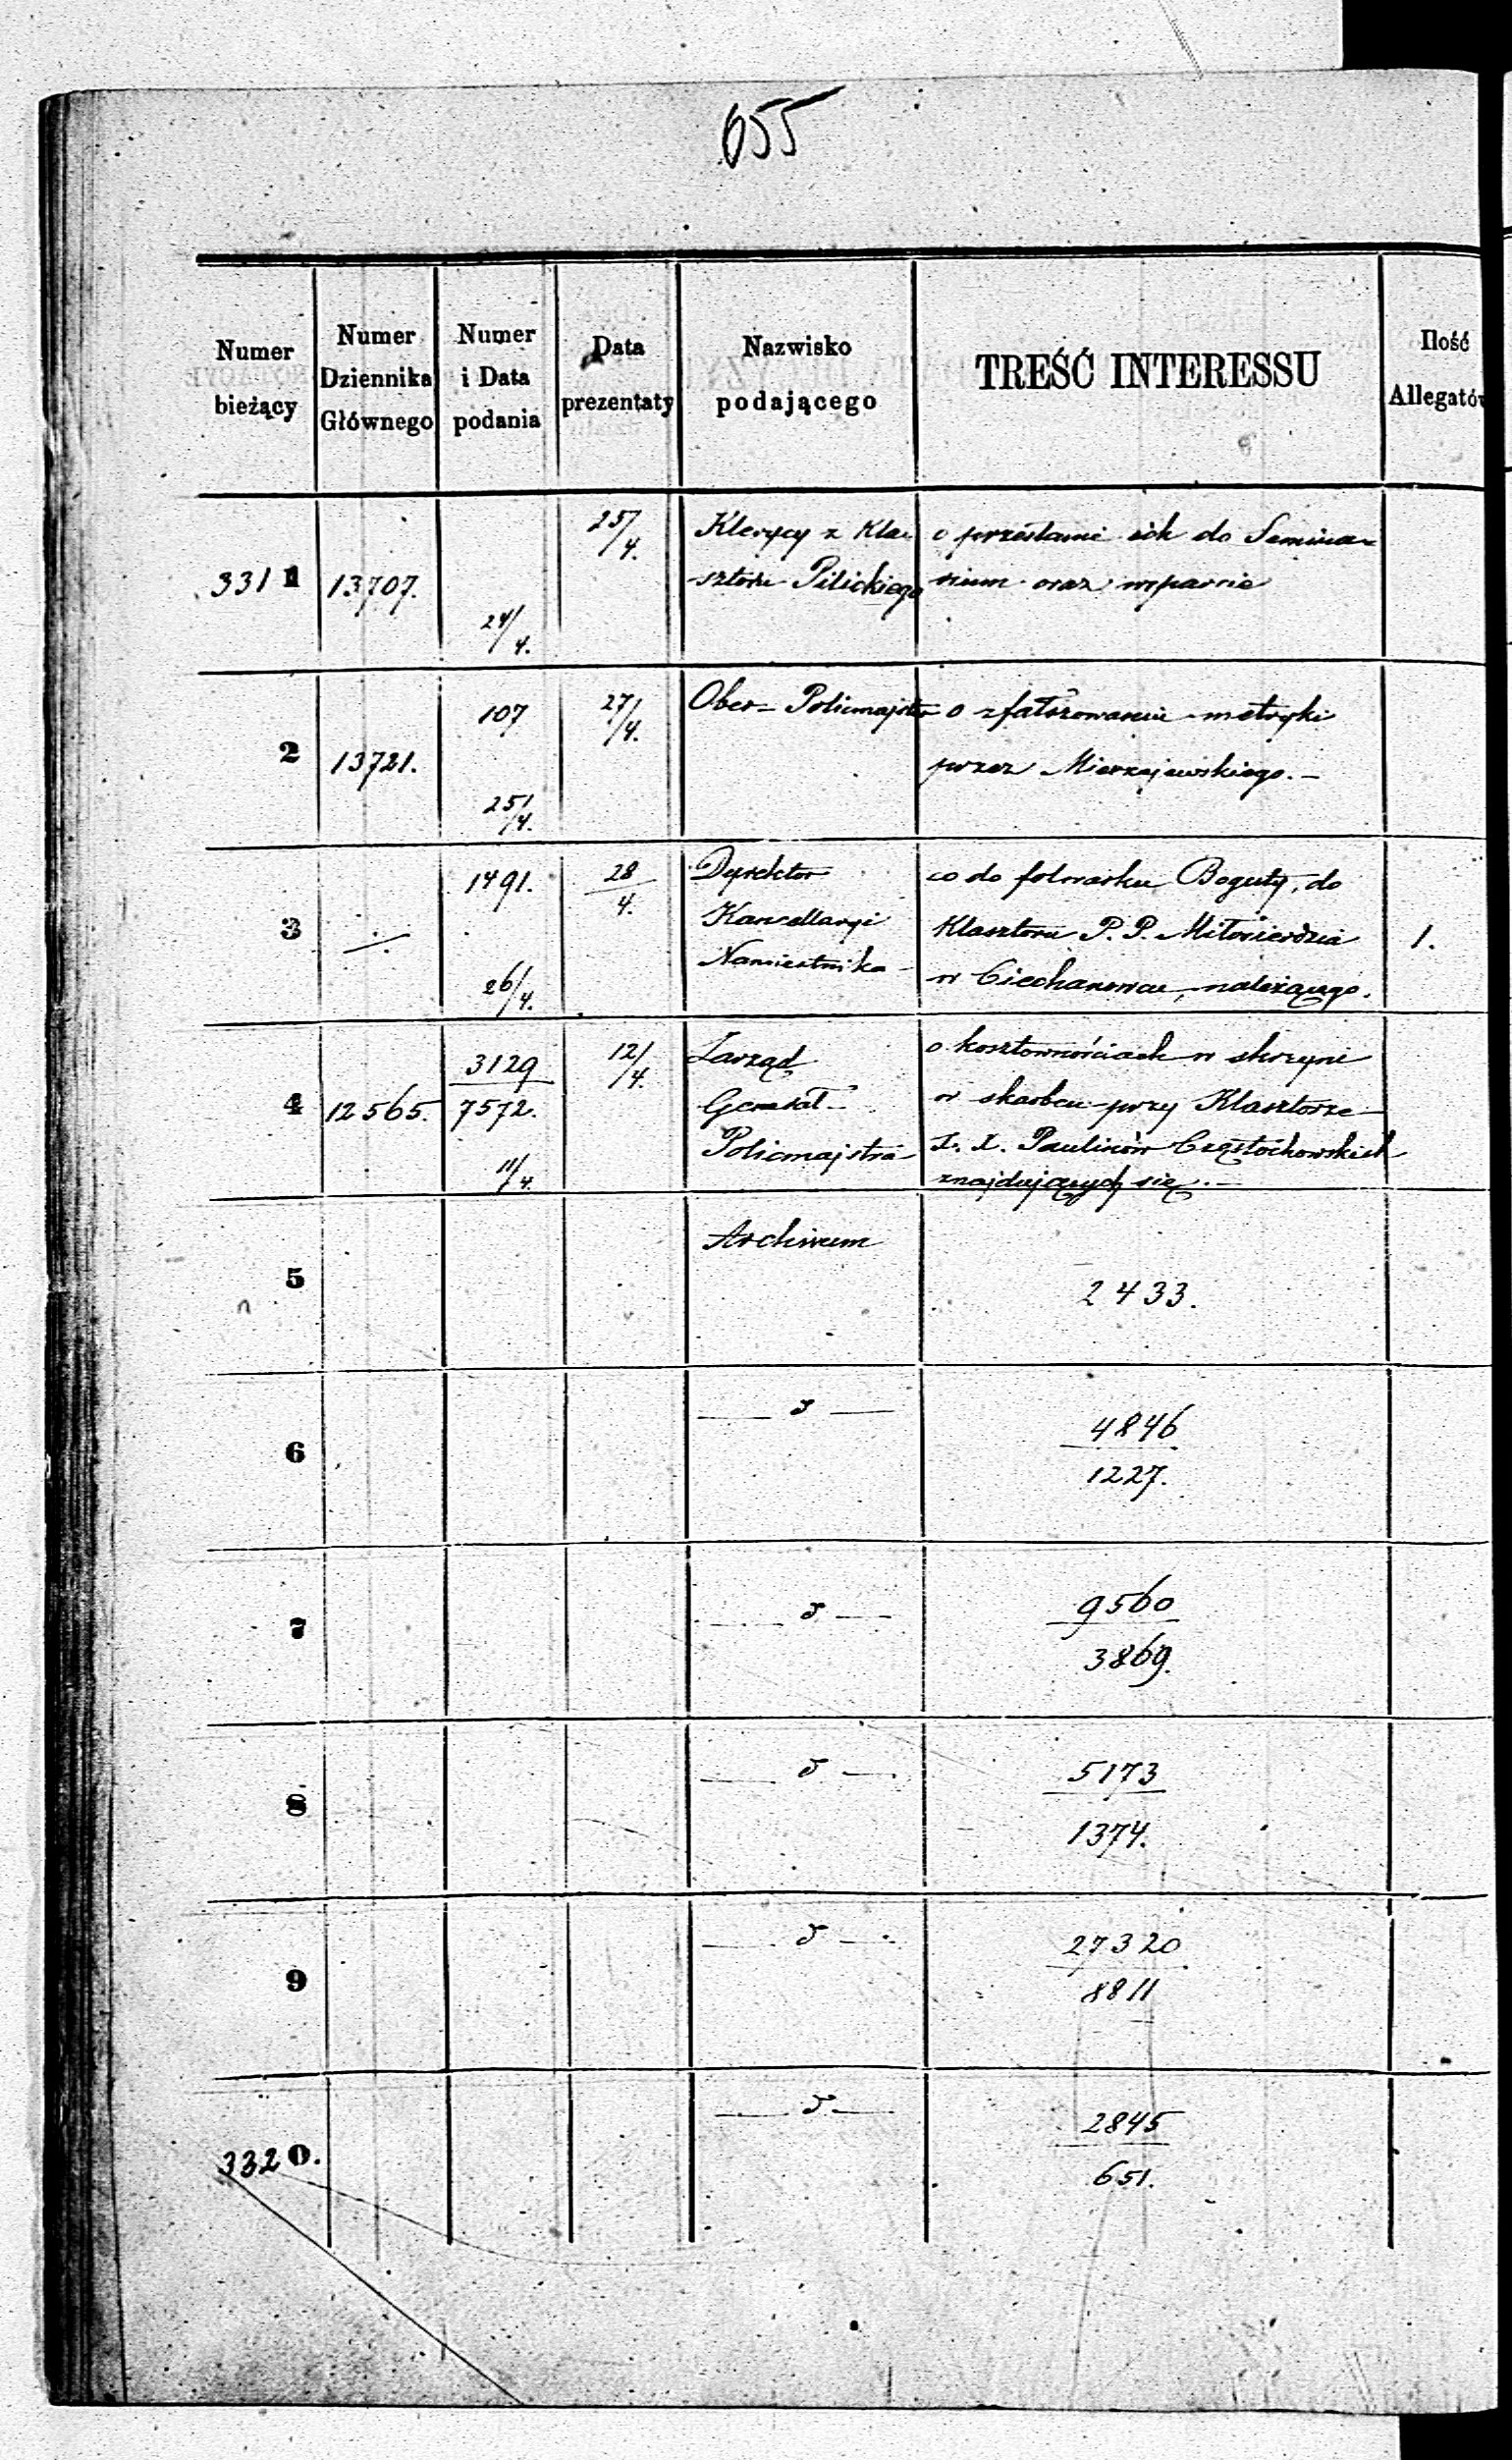 655
Numer bieżący
Numer Dziennika Głównego
Numer i Data podania
Data prezentaty
Nazwisko podającego
TREŚĆ INTERESSU
Ilość Allegatów
3311 13707. 24/4. 25/4. Klerycy z Kla- o przesłanie ich do Semina-
sztoru Pilickiego rium oraz wsparcie
2 13721. 107 25/4. 27/4. Ober-Policmajster o sfałszowanie metryki
przez Mierzejewskiego.-
3 -/. 1491. 26/4. 28/4. Dyrektor co do folwarku Boguty, do
Kancellaryi Klasztoru P. P. Miłosierdzia 1.
Namiestnika w Ciechanowcu, należącego.
4 12565. 3129/7572. 11/4. 12/4. Zarząd o kosztownościach w skrzyni
Generał- w skarbcu przy Klasztorze
Policmajstra X. X. Paulinów Częstochowskich
znajdujących się.-
5 Archiwum 2433.
6 4846
1227.
7 9560
3869.
8 5173
1374.
9 27320
8811
3320. 2845
651.